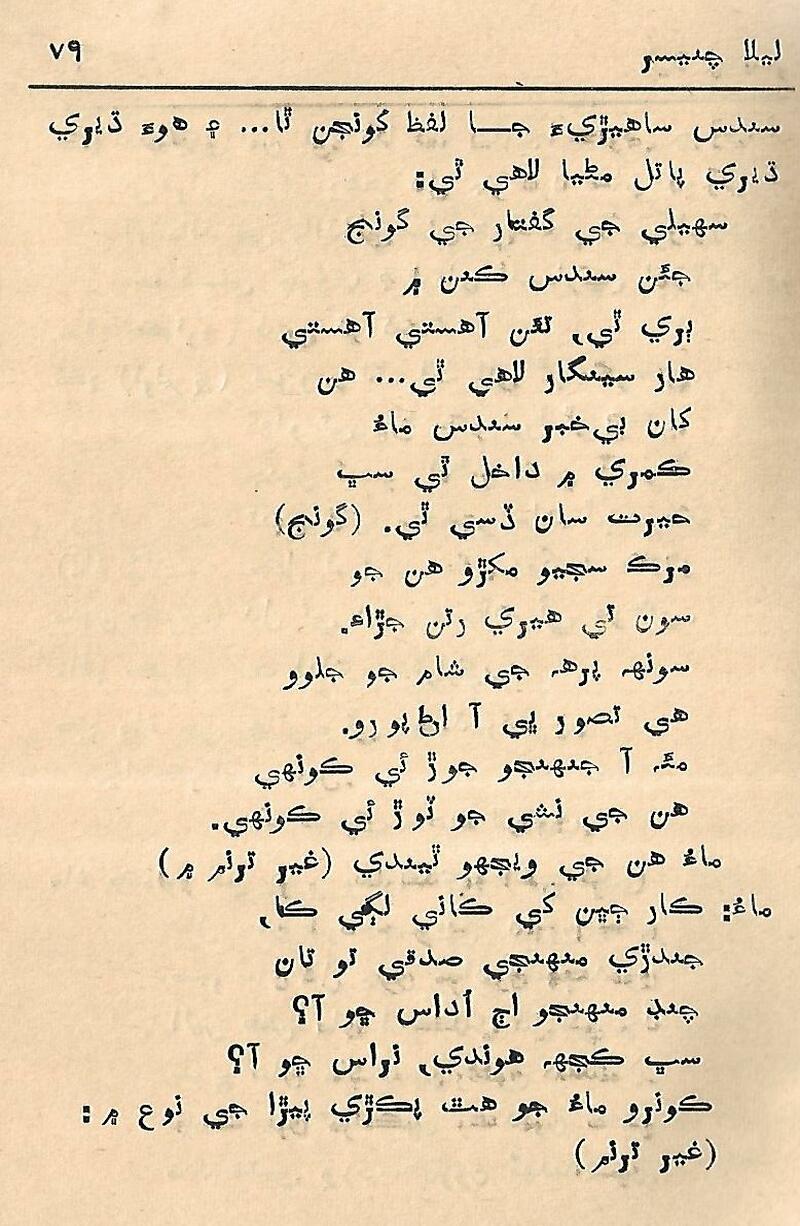 ليلا چنيسر
٧٩
سندس ساهيڙيءَ جــا لفظ گونجن ٿا... ۽ هوءَ ڌيري
ڌيري پائل مڻيا لاهي ٿي:
سهيلي جي گفتار جي گونج
جئن سندس ڪنن ۾
ٻري ٿي، تئن آهستي آهستي
هار سينگار لاهي ٿي... هن
کان بي‌خبر سندس ماءُ
ڪمري ۾ داخل ٿي سڀ
حيرت سان ڏسي ٿي. (گونج)
مرڪ سڄيو مکڙو هن جو
سون تي هيري رتن جڙاءَ.
سونهه پرهه جي شام جو جلوو
هي تصور ڀي آ اڻپورو.
مٿه آ جنهنجو جوڙ ئي ڪونهي
هن جي نشي جو ٽوڙ ئي ڪونهي.
ماءُ هن جي ويجهو ٿيندي (غير ترنم ۾)
ماءُ: ڪار ڄڀن کي ڪاٽي لڳي ڪا،
جندڙي منهنجي صدقي تو تان
چنڊ منهنجو اڄ اُداس ڇو آ؟
سڀ ڪجهه هوندي، نراس ڇو آ؟
ڪونرو ماءُ جو هٿ پڪڙي پيڙا جي نوع ۾:
(غير ترنم)